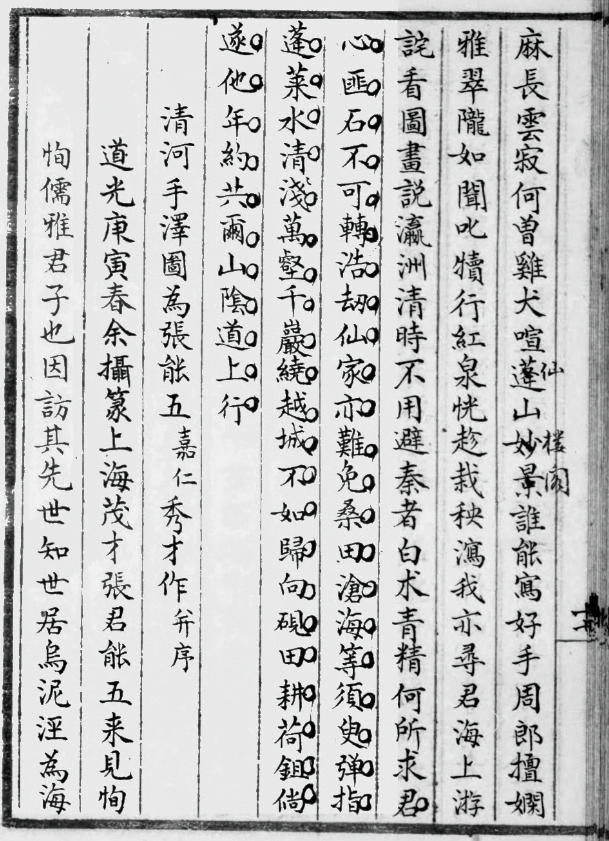 麻長雲寂何曾雞犬喧蓬山妙景誰能寫好手周郎擅嫻
仙 樓閣
雅翠隴如聞叱犢行紅泉恍趁栽秧瀉我亦尋君海上游
詫看圖畫説瀛洲清時不用避秦者白朮青精何所求君
心匪石不可轉浩劫仙家亦難免桑田滄海等須臾彈指
蓬萊水清淺萬壑千巖繞越城不如歸向硯田耕荷鉏倘
遂他年約共爾山陰道上行
清河手澤圖為張能五嘉仁秀才作并序
道光庚寅春余攝篆上海茂才張君能五来見恂
恂儒雅君子也因訪其先世知世居烏泥涇為海